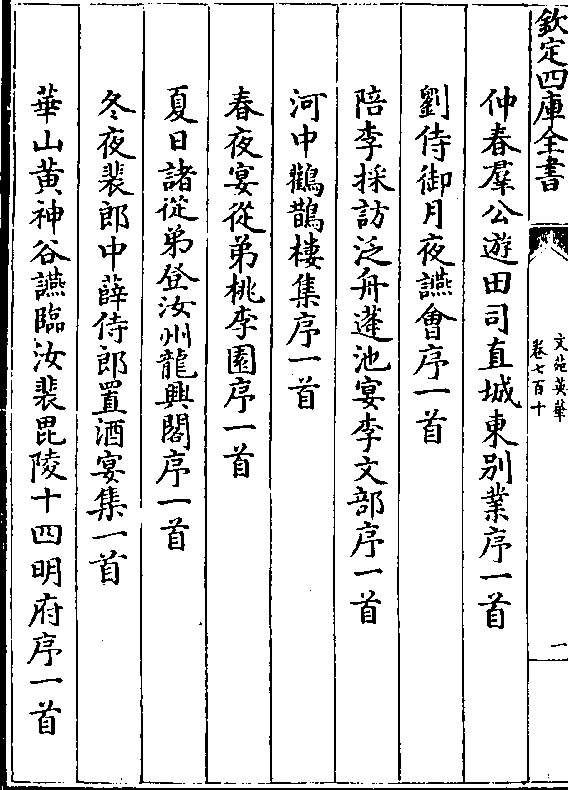 欽定四庫全書
文苑英華
卷七百十
二
仲春羣公遊田司直城東别業序一首
劉侍御月夜讌會序一首
陪李採訪泛舟蓬池宴李文部序一首
河中鸛鵲樓集序一首
春夜宴從弟桃李園序一首
夏日諸從弟登汝州龍興閣序一首
冬夜裴郎中薛侍郎置酒宴集一首
華山黄神谷讌臨汝裴毘陵十四明府序一首